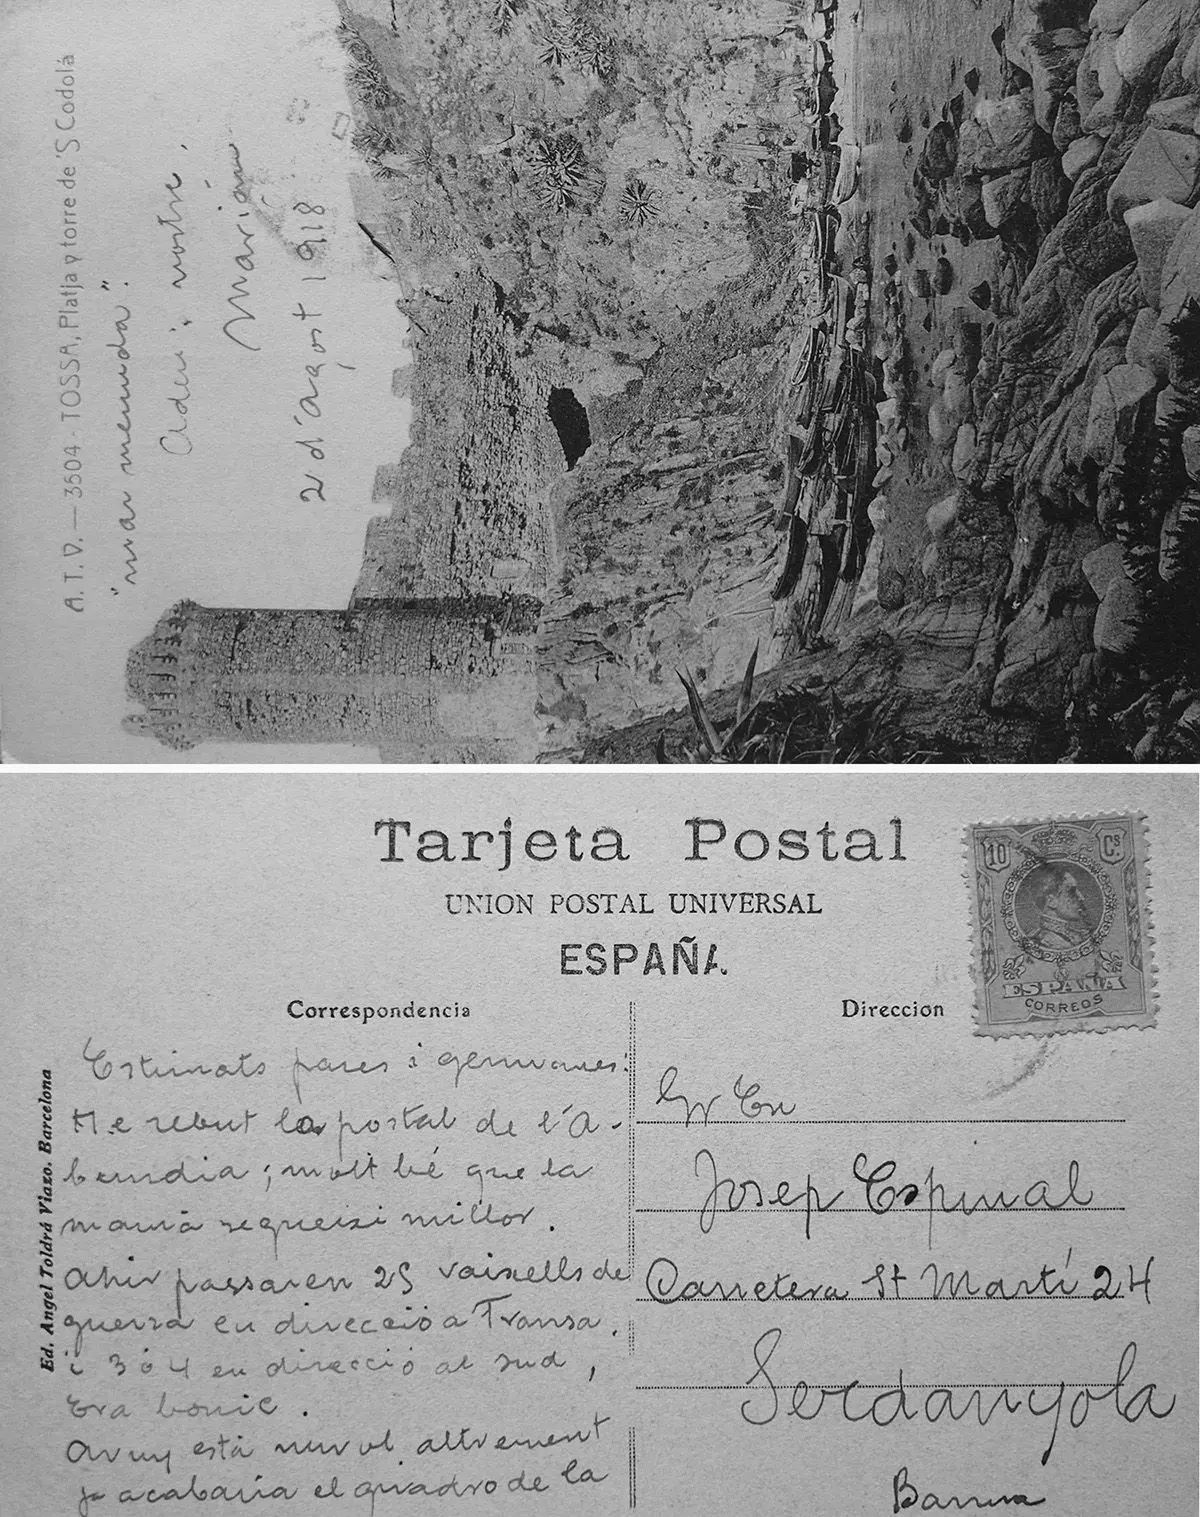 A. T. V. — 3504 - TOSSA, Platja y torre de 'S Codolá
"mar menuda".
Adeu; vostre.
Marián
2 d'Agost 1918
Tarjeta Postal
UNION POSTAL UNIVERSAL
ESPAÑA
10 Cs.
ESPAÑA
CORREOS
Correspondencia
Direccion
Ed. Angel Toldrá Viazo. Barcelona
Estimats pares i germanes:
He rebut la postal de l'A-
bundia; molt bé que la
mamá segueixi millor.
Ahir passaren 25 vaixells de
guerra en direcció a Fransa.
i 3 ó 4 en direcció al sud,
Era bonic.
Avuy está nuvol altrement
ja acabaría el quadro de la
Sr En
Josep Espinal
Carretera St Martí 24
Serdanyola